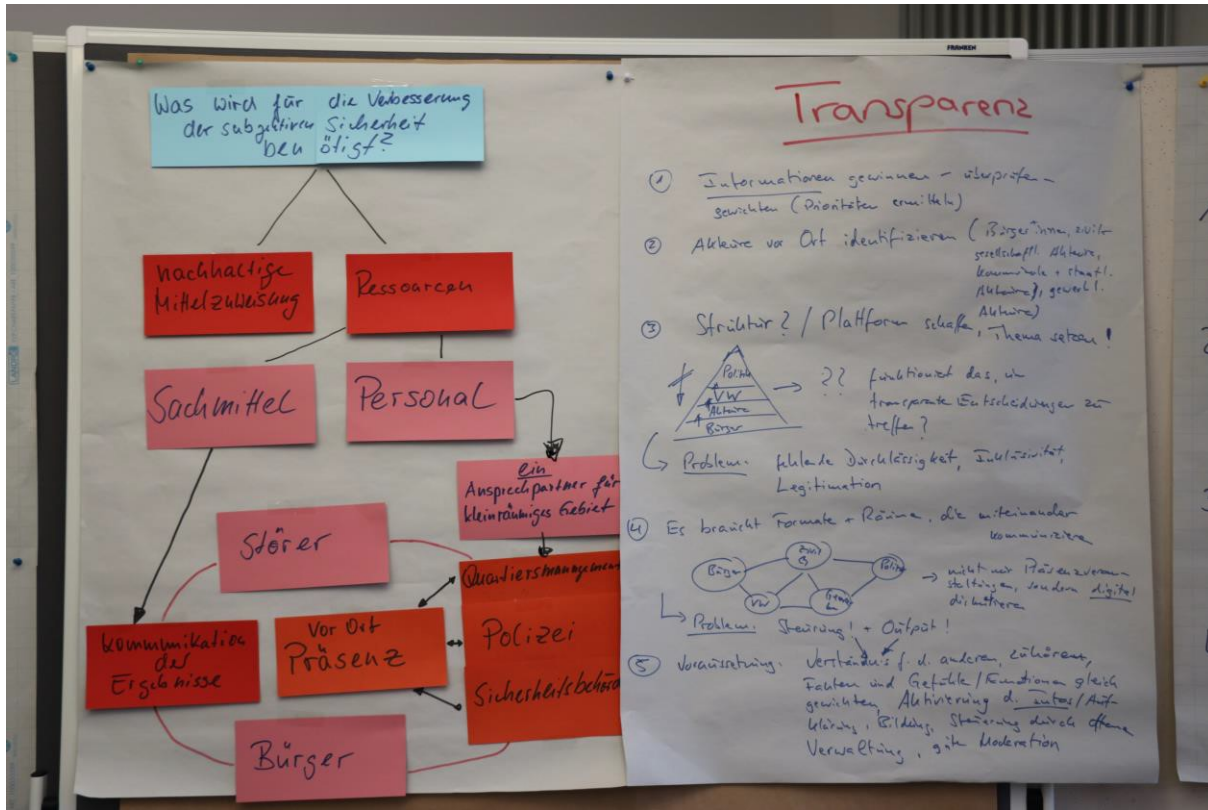 FRANKEN
Was wird für die Verbesserung
der subjektiven Sicherheit
benötigt?
nachhaltige
Mittelzuweisung
Ressourcen
Sachmittel
Personal
ein
Ansprechpartner für
kleinräumiges Gebiet
Störer
Quartiersmanagement
Vor Ort
Präsenz
Polizei
Kommunikation
der
Ergebnisse
Sicherheitsbehörd
Bürger
Transparenz
① Informationen gewinnen – überprüfen –
gewichten (Prioritäten ermitteln)
② Akteure vor Ort identifizieren (Bürger*innen, zivil-
gesellschaftl. Akteure,
kommunale + staatl.
Akteure, gewerbl.
Akteure)
③ Struktur? / Plattform schaffen, Thema setzen!
Politik
VW
Akteure
Bürger
→ ?? funktioniert das, um
transparente Entscheidungen zu
treffen?
Problem: fehlende Durchlässigkeit, Inklusivität,
Legitimation
④ Es braucht Formate + Räume, die miteinander
kommunizieren
Bürger
Politik
VW
→ nicht nur Präsenzveran-
staltungen, sondern digital
diskutieren
Problem: Steuerung! + Output!
⑤ Voraussetzung: Verständnis f. d. anderen, zuhören,
Fakten und Gefühle/Emotionen gleich
gewichten, Aktivierung d. Infos/Auf-
klärung, Bildung, Steuerung durch offene
Verwaltung, gute Moderation